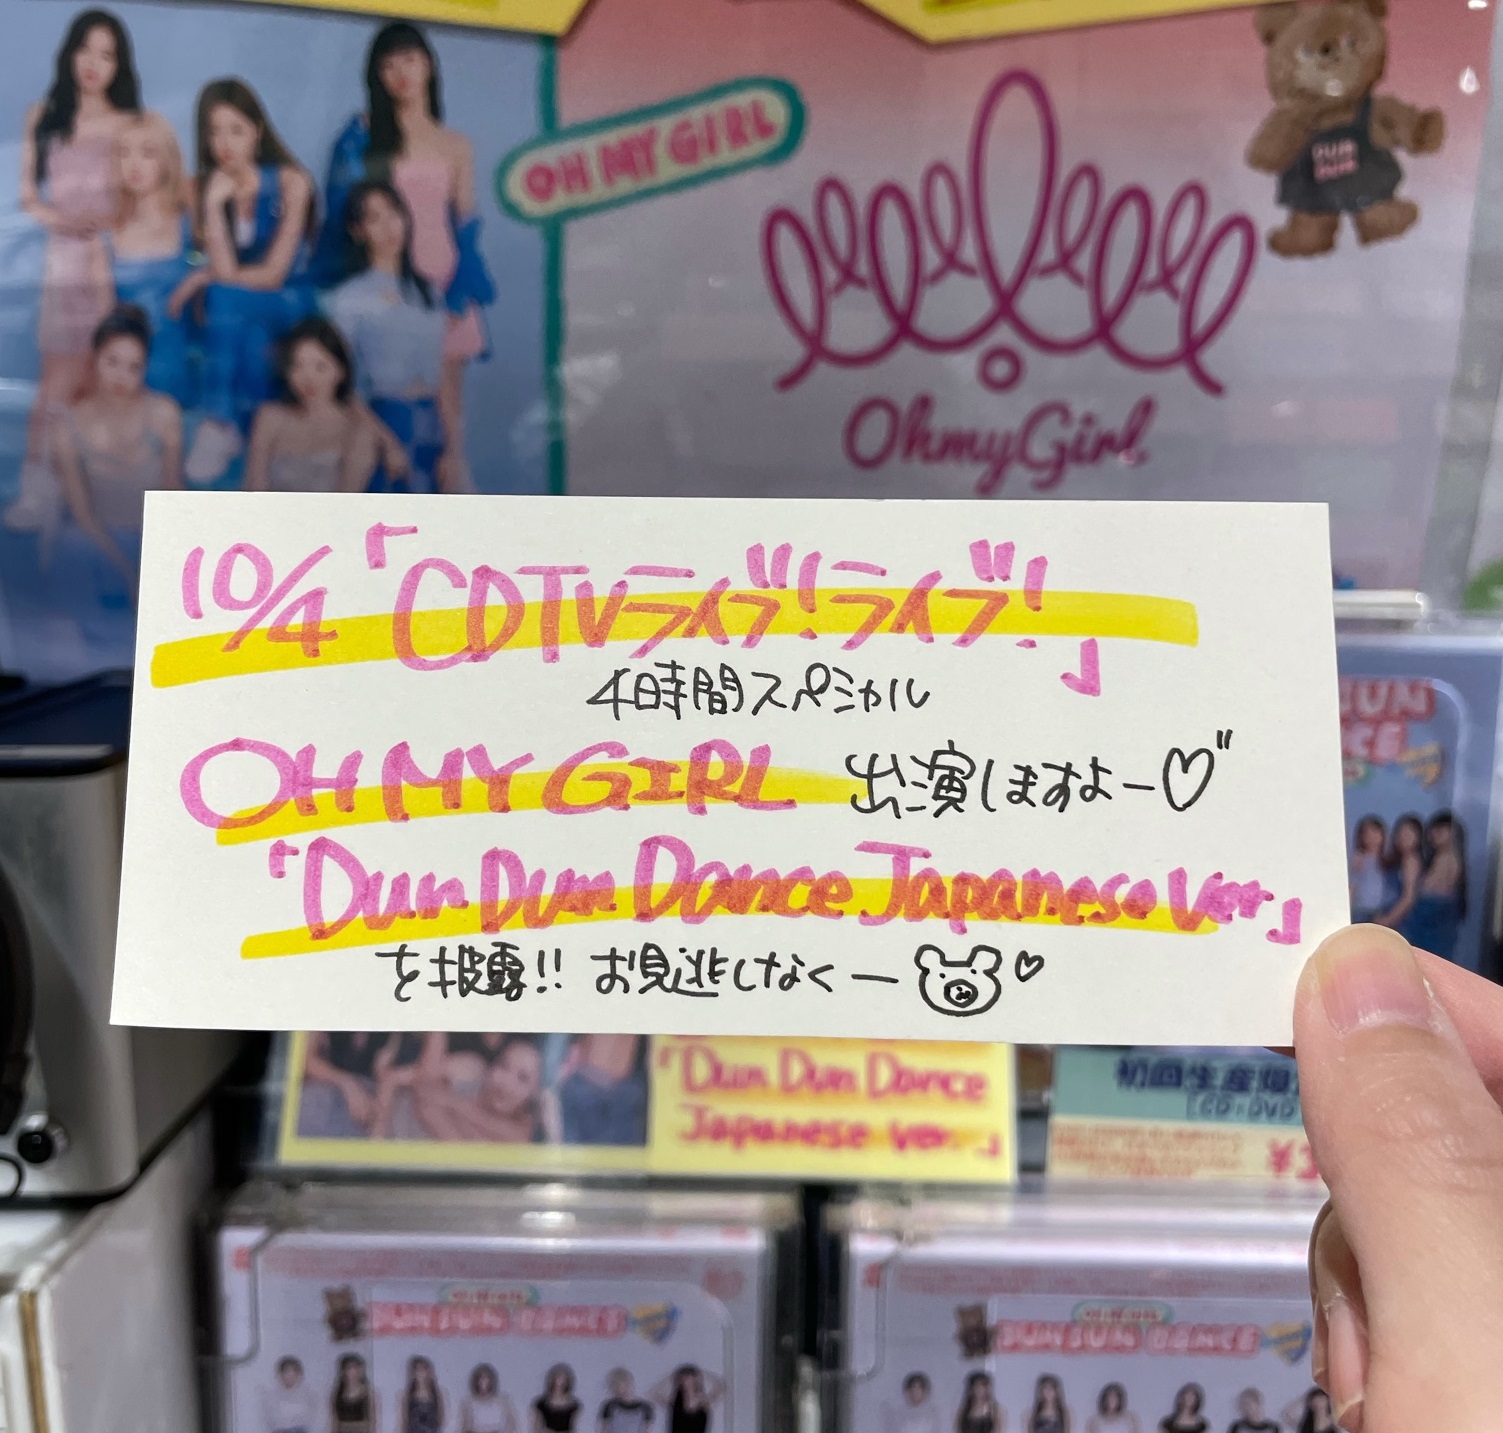 OH MY GIRL
DUN
DUN
OhmyGirl
10/4「CDTVライブ!ライブ!
4時間スペシャル」
OH MY GIRL 出演しますよー♡"
「Dun Dun Dance Japanese ver.」
を披露!! お見逃しなくー♡
「Dun Dun Dance
Japanese ver.」
初回生産限
CD+DVD
¥3
DUN DUN DANCE
DUN DUN DANCE